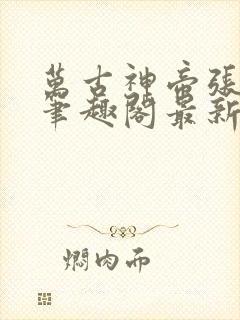 萬古神帝張
筆趣閣最新
燜肉面